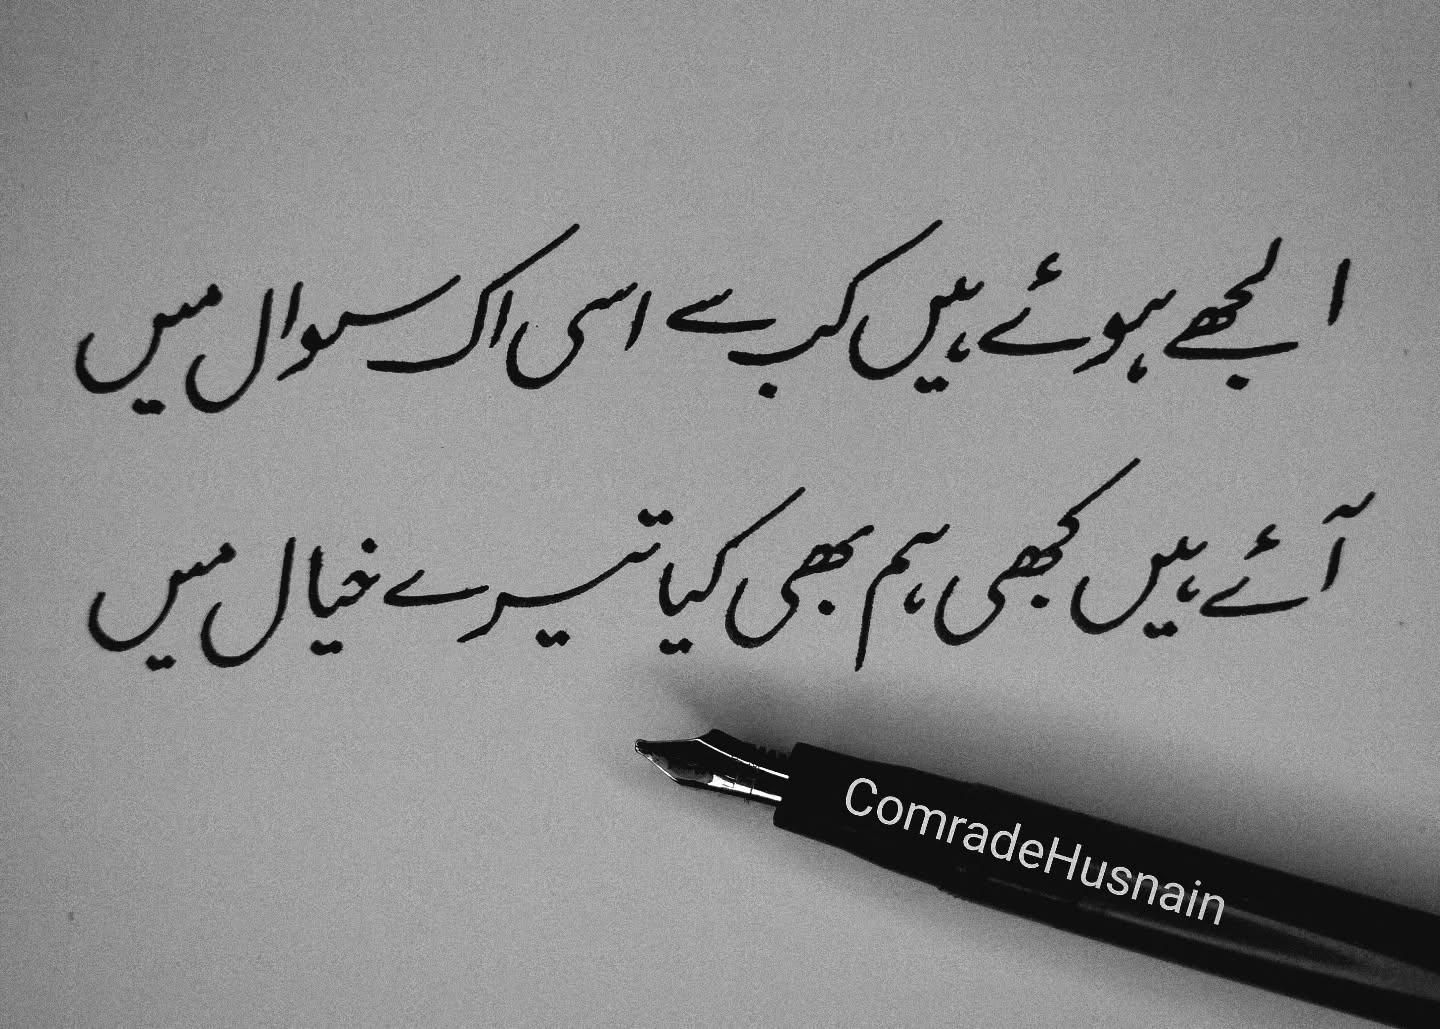 الجھے ہوئے ہیں کب سے اسی اک سوال میں
آئے ہیں کبھی ہم بھی کیا تیرے خیال میں
ComradeHusnain